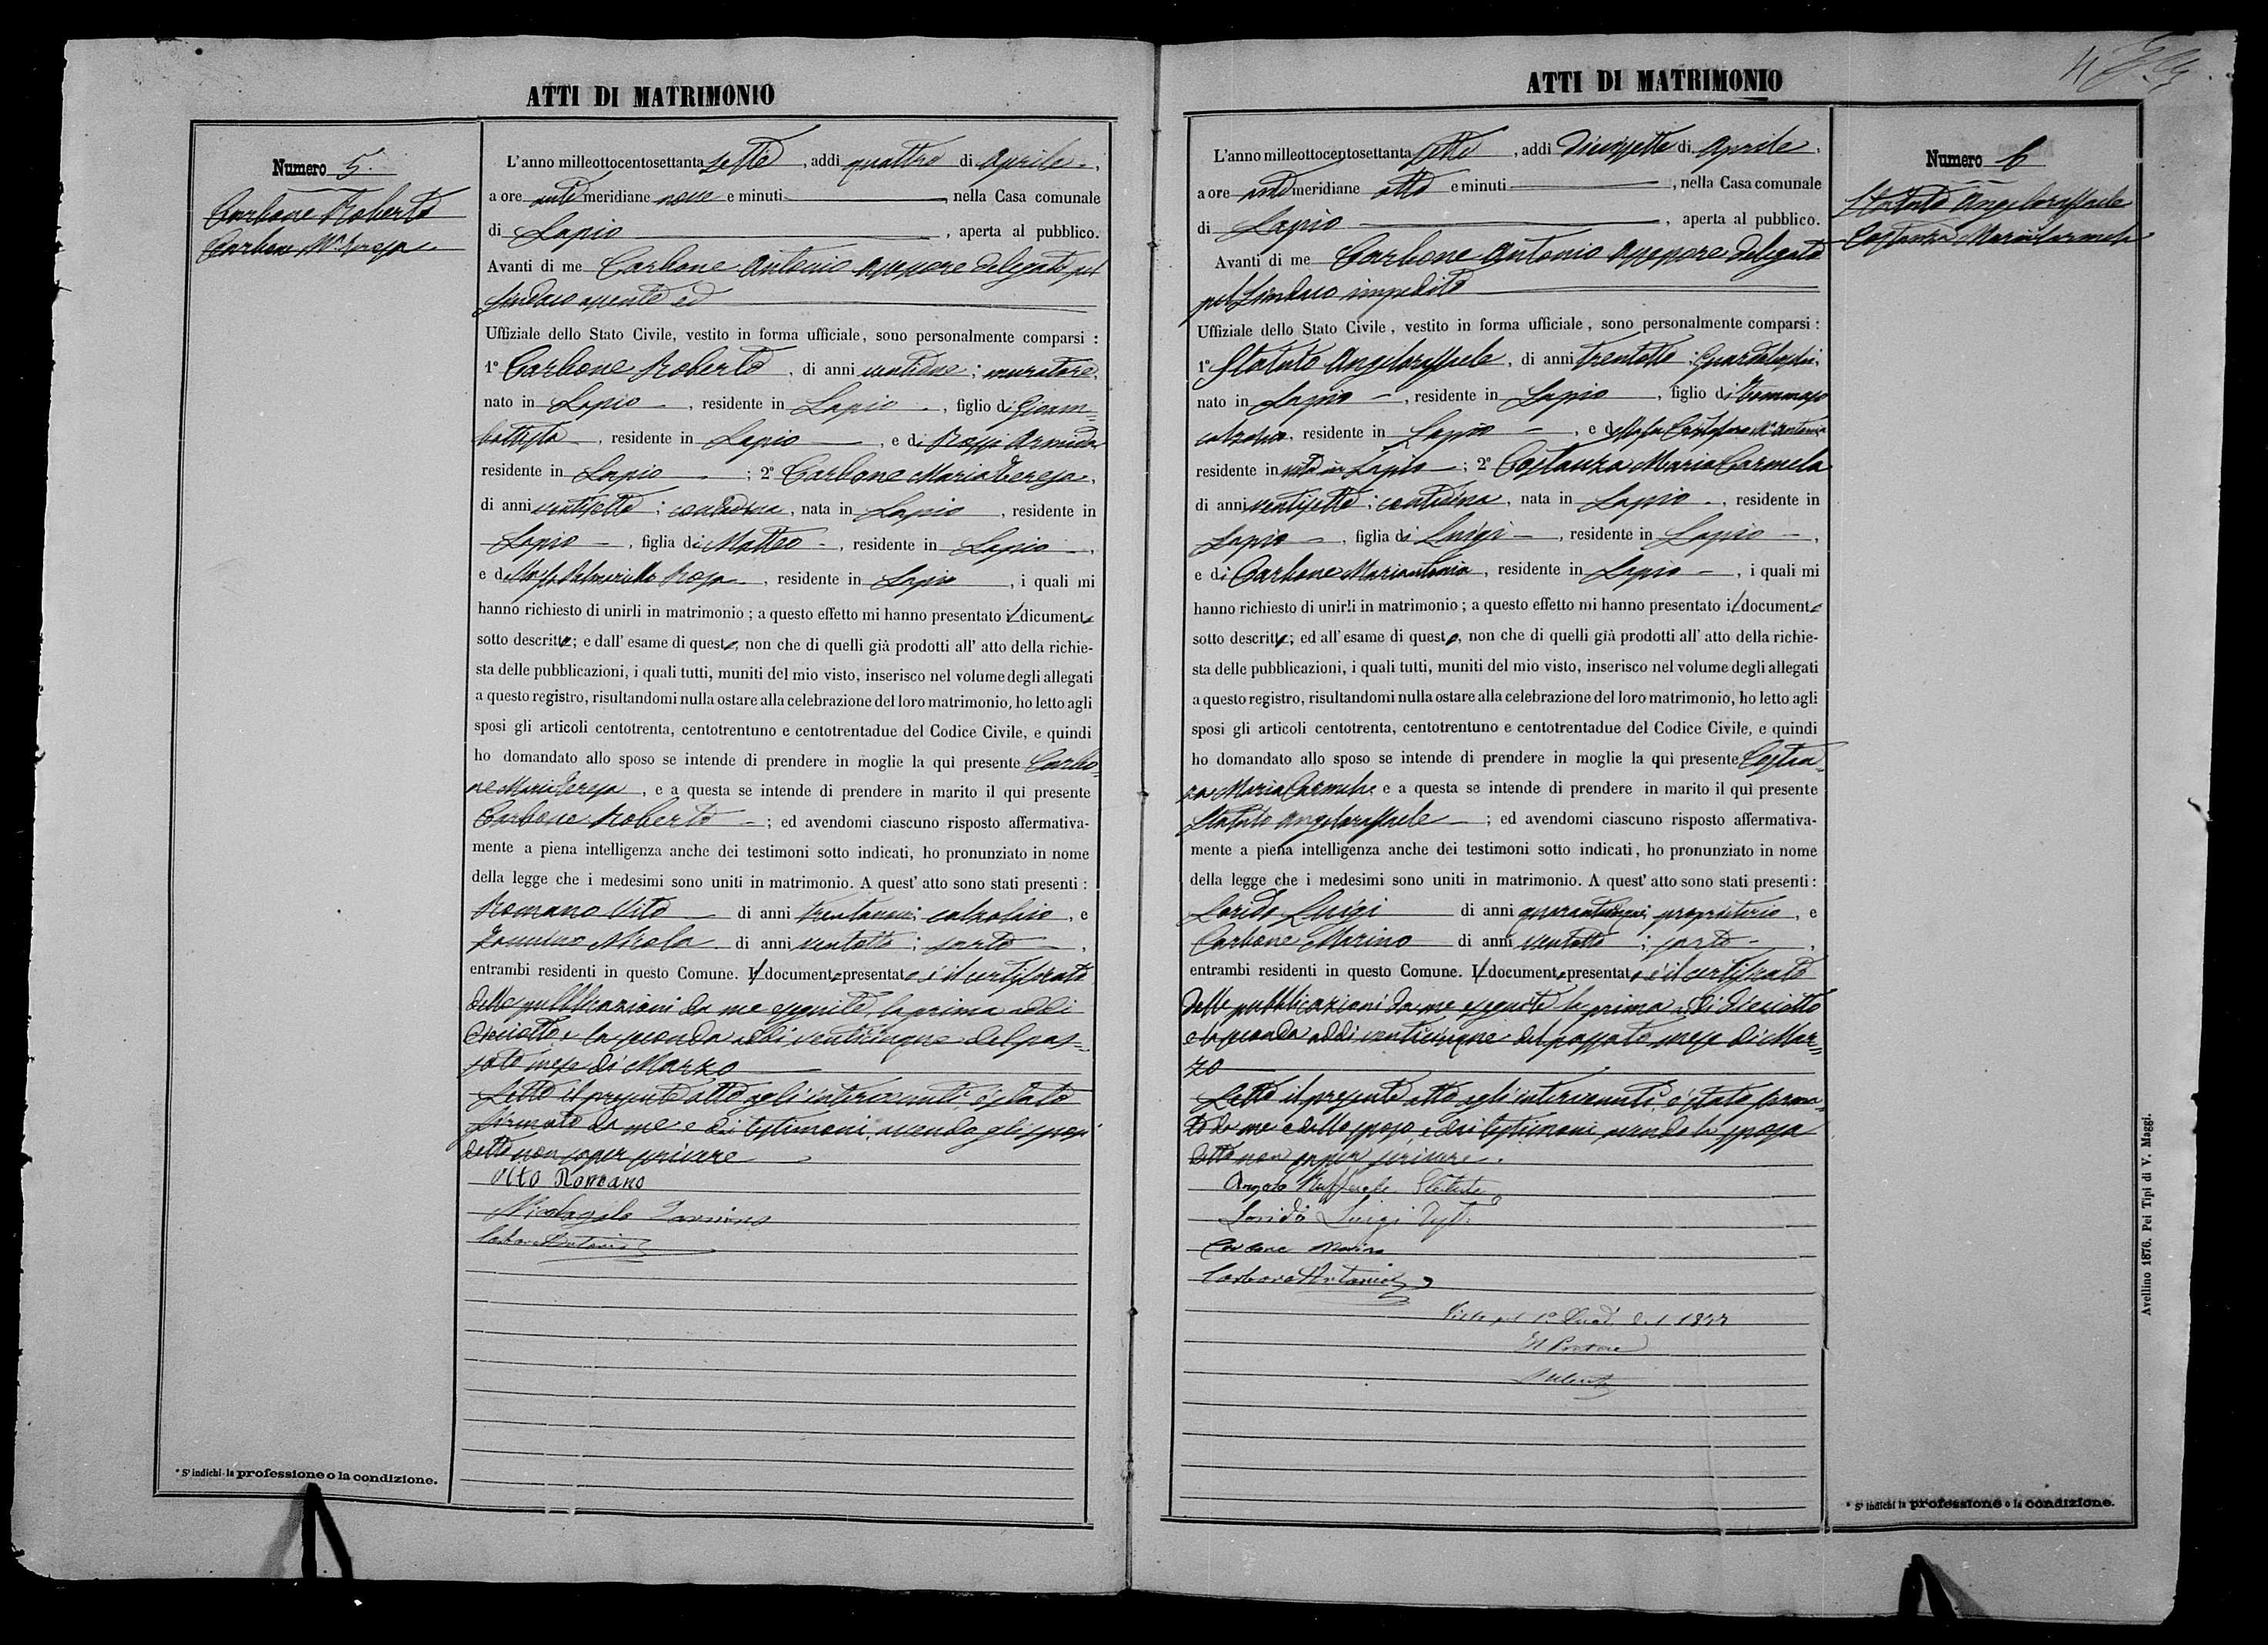 ATTI DI MATRIMONIO
Numero 5.
Carbone Roberto
Carbone Ma Teresa
L'anno milleottocentosettanta sette, addi quattro di Aprile,
a ore anti meridiane nove e minuti, nella Casa comunale
di Lapio, aperta al pubblico.
Avanti di me Carbone Antonio Assessore delegato pel
Sindaco assente ed
Uffiziale dello Stato Civile, vestito in forma ufficiale, sono personalmente comparsi :
1º Carbone Roberto, di anni; muratore,
nato in Lapio, residente in Lapio, figlio di Giovam=
battista, residente in Lapio, e di Rossi Armida
residente in Lapio; 2º Carbone Maria Teresa,
di anni ventisette; contadina, nata in Lapio, residente in
Lapio, figlia di Matteo, residente in Lapio,
e di Rosa, residente in Lapio, i quali mi
hanno richiesto di unirli in matrimonio ; a questo effetto mi hanno presentato il dicumento
sotto descritto; e dall' esame di questo, non che di quelli già prodotti all' atto della richie-
sta delle pubblicazioni, i quali tutti, muniti del mio visto, inserisco nel volume degli allegati
a questo registro, risultandomi nulla ostare alla celebrazione del loro matrimonio, ho letto agli
sposi gli articoli centotrenta, centotrentuno e centotrentadue del Codice Civile, e quindi
ho domandato allo sposo se intende di prendere in moglie la qui presente Carbo=
ne Maria Teresa, e a questa se intende di prendere in marito il qui presente
Carbone Roberto; ed avendomi ciascuno risposto affermativa-
mente a piena intelligenza anche dei testimoni sotto indicati, ho pronunziato in nome
della legge che i medesimi sono uniti in matrimonio. A quest' atto sono stati presenti :
Romano Vito di anni trentanove; calzolaio, e
Iannino Nicola di anni ventotto; sarto,
entrambi residenti in questo Comune. Il documento presentato è il certificato
delle pubblicazioni da me eseguite, la prima addi
diciotto e la seconda addi venticinque del pas=
sato mese di Marzo
Letto il presente atto agli intervenuti, è stato
firmato da me e dai testimoni, avendo gli sposi
detto non saper scrivere
Vito Romano
Nicolangelo Iannino
Carbone Antonio
* S' indichi la professione o la condizione.
ATTI DI MATRIMONIO
Numero 6
Statuto Angeloraffaele
Costanza Mariacarmela
L'anno milleottocentosettanta sette, addi diciassette di Aprile,
a ore anti meridiane otto e minuti, nella Casa comunale
di Lapio, aperta al pubblico.
Avanti di me Carbone Antonio Assessore delegato
pel Sindaco impedito
Uffiziale dello Stato Civile, vestito in forma ufficiale, sono personalmente comparsi :
1º Statuto Angeloraffaele, di anni trentotto;
nato in Lapio, residente in Lapio, figlio di Tommaso
calzolaio, residente in Lapio, e della fu Cristofaro Ma Antonia
residente in vita in Lapio; 2º Costanza Maria Carmela
di anni ventisette; contadina, nata in Lapio, residente in
Lapio, figlia di Luigi, residente in Lapio,
e di Carbone Mariantonia, residente in Lapio, i quali mi
hanno richiesto di unirli in matrimonio ; a questo effetto mi hanno presentato il documento
sotto descritto; ed all' esame di questo, non che di quelli già prodotti all' atto della richie-
sta delle pubblicazioni, i quali tutti, muniti del mio visto, inserisco nel volume degli allegati
a questo registro, risultandomi nulla ostare alla celebrazione del loro matrimonio, ho letto agli
sposi gli articoli centotrenta, centotrentuno e centotrentadue del Codice Civile, e quindi
ho domandato allo sposo se intende di prendere in moglie la qui presente Costan=
za Maria Carmela, e a questa se intende di prendere in marito il qui presente
Statuto Angeloraffaele; ed avendomi ciascuno risposto affermativa-
mente a piena intelligenza anche dei testimoni sotto indicati, ho pronunziato in nome
della legge che i medesimi sono uniti in matrimonio. A quest' atto sono stati presenti :
Lorido Luigi di anni quarantacinque; proprietario, e
Carbone Marino di anni ventotto; sarto,
entrambi residenti in questo Comune. Il documento presentato è il certificato
delle pubblicazioni da me eseguite la prima addi diciotto
e la seconda addi venticinque del passato mese di Mar=
zo
Letto il presente atto agli intervenuti, è stato firma=
to da me e dallo sposo, e dai testimoni avendo la sposa
detto non saper scrivere.
Angelo Raffaele Statuto
Lorido Luigi Test:
Carbone Marino
Carbone Antonio
Visto pel 1º Quad. del 1877
Il Pretore
Avellino 1876. Pei Tipi di V. Maggi.
* S' indichi la professione o la condizione.